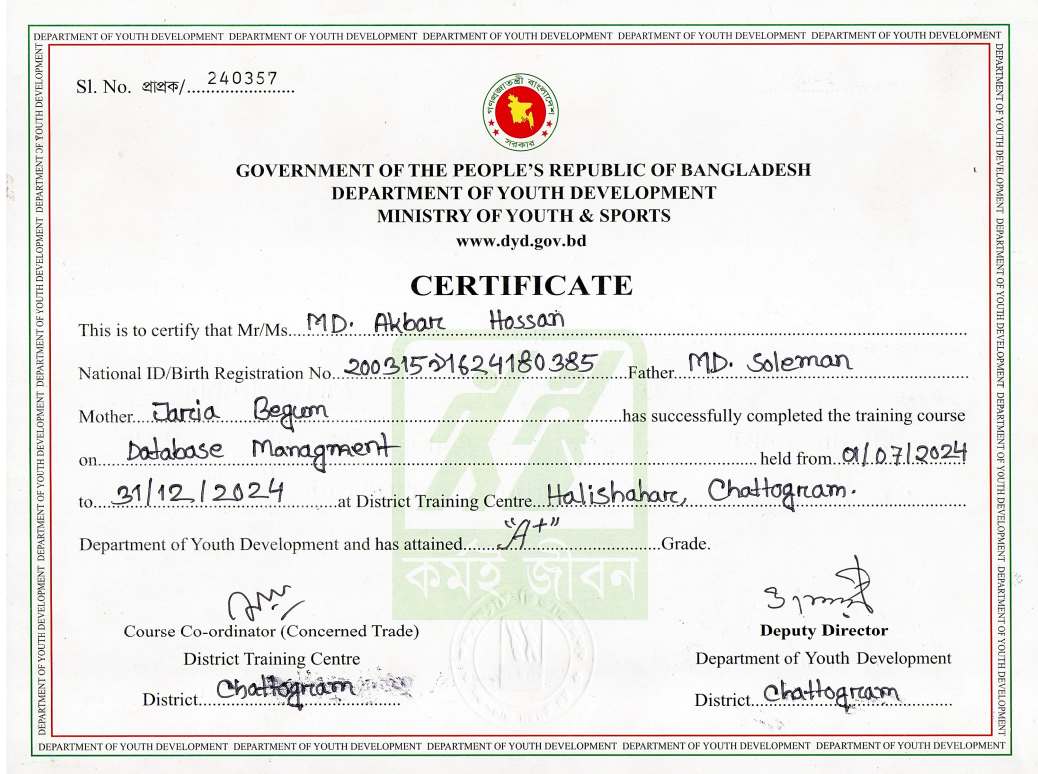 DEPARTMENT OF YOUTH DEVELOPMENT DEPARTMENT OF YOUTH DEVELOPMENT DEPARTMENT OF YOUTH DEVELOPMENT DEPARTMENT OF YOUTH DEVELOPMENT DEPARTMENT OF YOUTH DEVELOPMENT
Sl. No. প্রাপ্রক/ 240357
গণপ্রজাতন্ত্রী বাংলাদেশ
সরকার
GOVERNMENT OF THE PEOPLE'S REPUBLIC OF BANGLADESH
DEPARTMENT OF YOUTH DEVELOPMENT
MINISTRY OF YOUTH & SPORTS
www.dyd.gov.bd
CERTIFICATE
This is to certify that Mr/Ms. MD. Akbar Hossan
National ID/Birth Registration No. Father MD. Soleman
Mother Begum has successfully completed the training course
on Database Managment held from 01/07/2024
to 31/12/2024 at District Training Centre Halishahar, Chattogram.
Department of Youth Development and has attained "A+" Grade.
কর্মই জীবন
Course Co-ordinator (Concerned Trade)
Deputy Director
District Training Centre
Department of Youth Development
District Chattogram
District Chattogram
DEPARTMENT OF YOUTH DEVELOPMENT DEPARTMENT OF YOUTH DEVELOPMENT DEPARTMENT OF YOUTH DEVELOPMENT DEPARTMENT OF YOUTH DEVELOPMENT DEPARTMENT OF YOUTH DEVELOPMENT
DEPARTMENT OF YOUTH DEVELOPMENT DEPARTMENT OF YOUTH DEVELOPMENT DEPARTMENT OF YOUTH DEVELOPMENT DEPARTMENT OF YOUTH DEVELOPMENT
DEPARTMENT OF YOUTH DEVELOPMENT DEPARTMENT OF YOUTH DEVELOPMENT DEPARTMENT OF YOUTH DEVELOPMENT DEPARTMENT OF YOUTH DEVELOPMENT